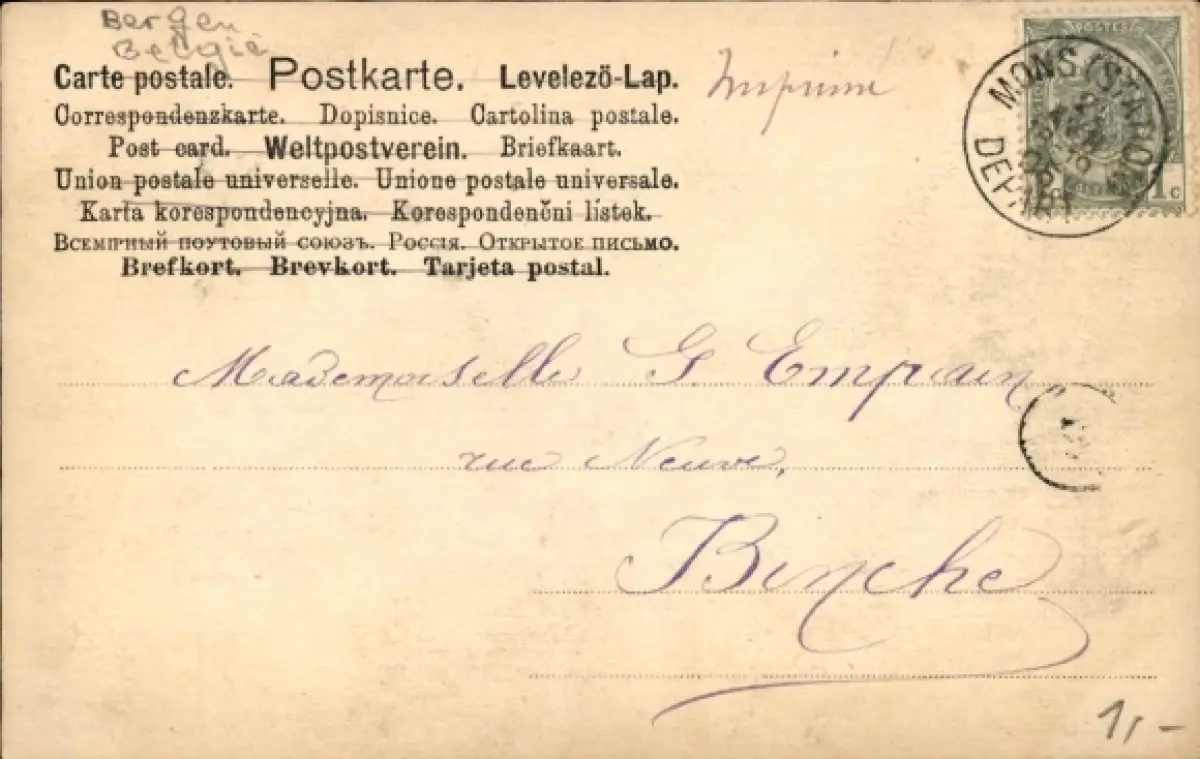 Bergen
België
Carte postale. Postkarte. Levelezö-Lap.
Correspondenzkarte. Dopisnice. Cartolina postale.
Post card. Weltpostverein. Briefkaart.
Union postale universelle. Unione postale universale.
Karta korespondencyjna. Korespondenčni listek.
Всемірный поутовый союзъ. Россія. Открытое письмо.
Brefkort. Brevkort. Tarjeta postal.
Imprimé
POSTES
MONS (STATION)
DEPART
1 c
Mademoiselle G Empain
rue Neuve,
Binche
1,-